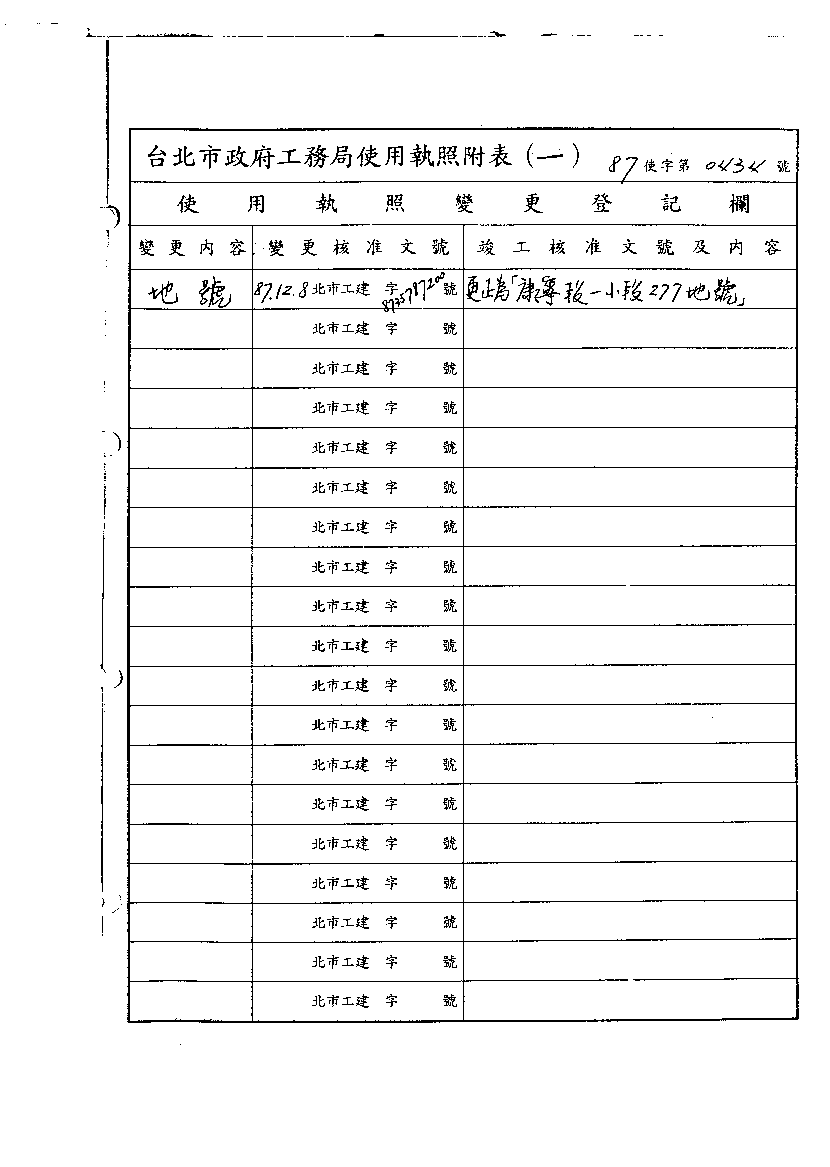 台北市政府工務局使用執照附表(一) 87使字第0434號
使用執照變更登記欄
變更內容 變更核准文號 竣工核准文號及內容
地號 87.12.8北市工建 字8735787200號 更正為「康寧段一小段277地號」
北市工建 字 號
北市工建 字 號
北市工建 字 號
北市工建 字 號
北市工建 字 號
北市工建 字 號
北市工建 字 號
北市工建 字 號
北市工建 字 號
北市工建 字 號
北市工建 字 號
北市工建 字 號
北市工建 字 號
北市工建 字 號
北市工建 字 號
北市工建 字 號
北市工建 字 號
北市工建 字 號